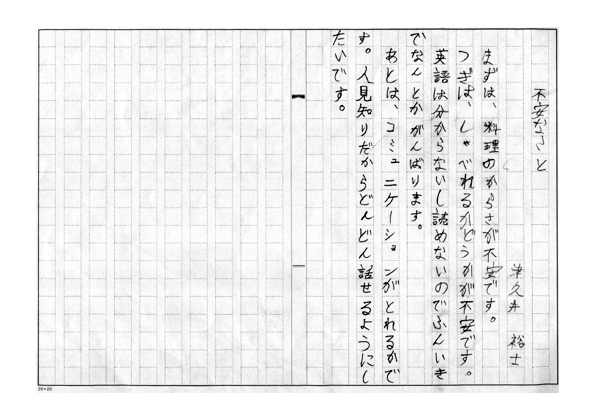 不安なこと
津久井 裕士
まずは、料理のからさが不安です。
つぎは、しゃべれるかどうかが不安です。
英語は分からないし読めないのでふんいき
でなんとかがんばります。
あとは、コミュニケーションがとれるかで
す。人見知りだからどんどん話せるようにし
たいです。
20×20